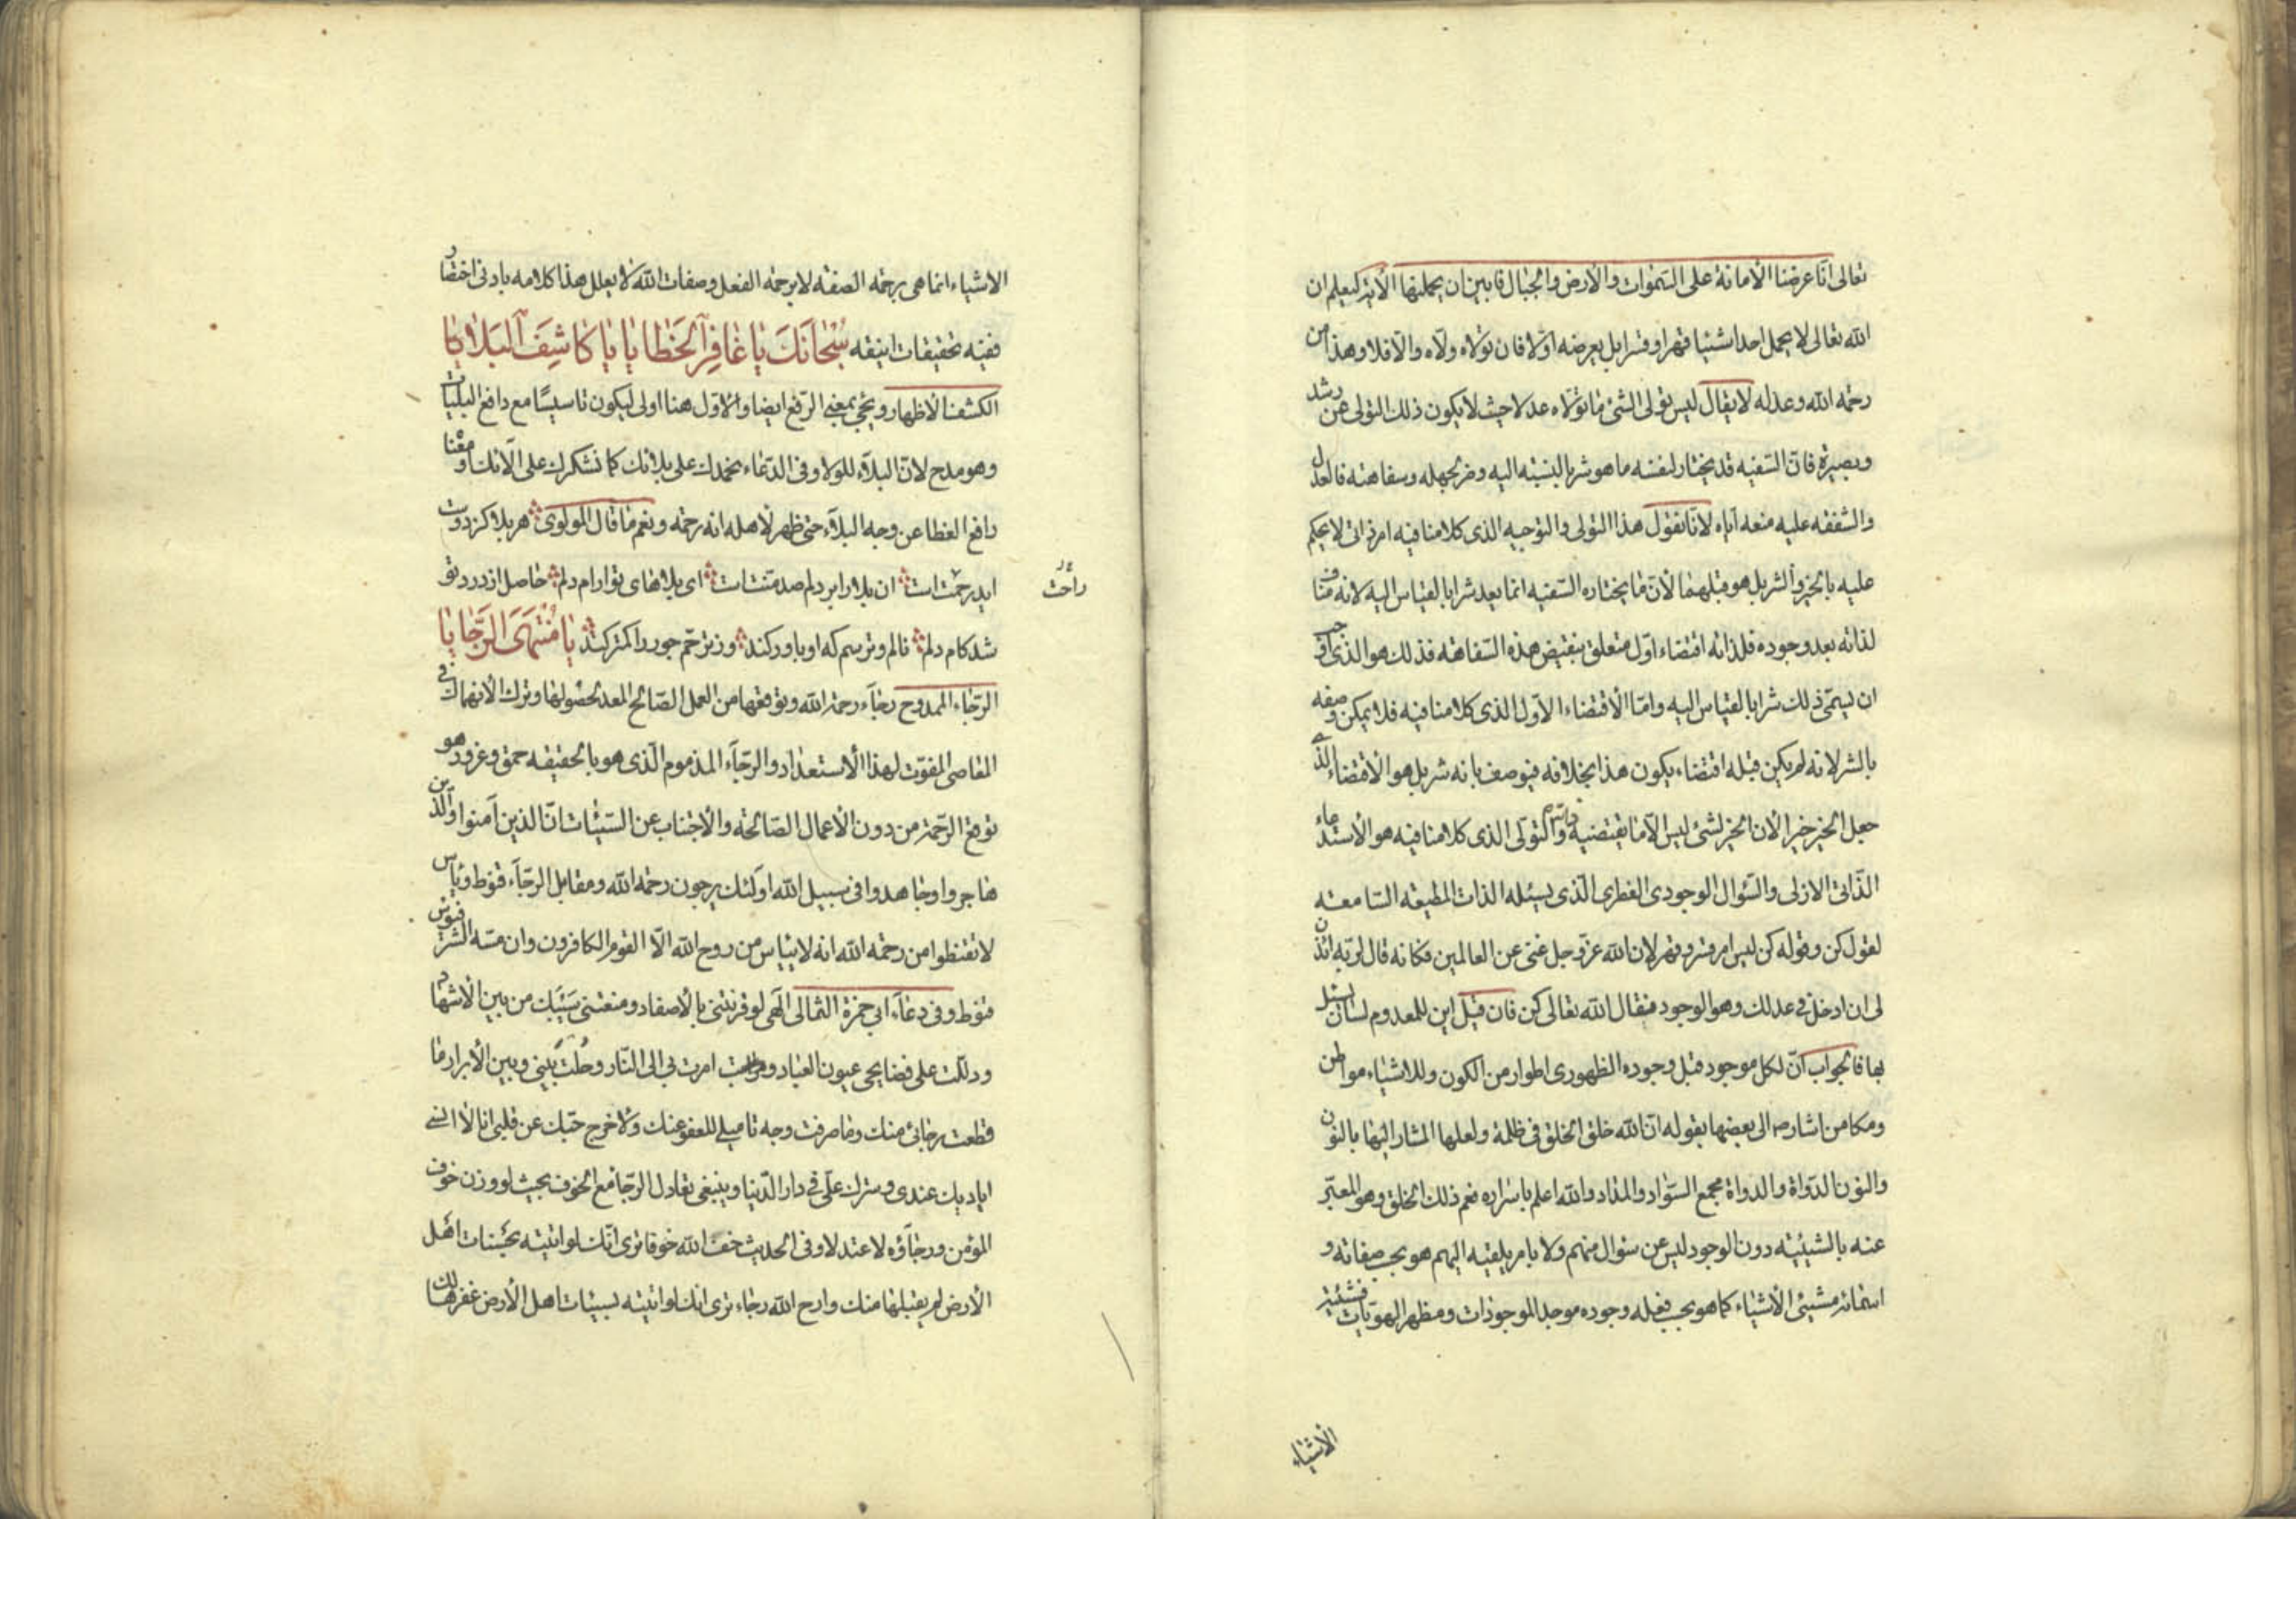 تعالی انّا عرضنا الأمانة علی السّموات والأرض والجبال فابین ان یحملنها الأیة لیعلم ان
الله تعالی لا یحمل احدا شیئا قهرا وقسرا بل یعرضه اوّلا فان تولاه ولّاه والّا فلا وهذا من
رحمة الله وعدله لا یقال لیس تولی الشئ ما تولاه عدلا حیث لا یکون ذلك التولی عن رشد
وبصیرة فانّ السّفیه قد یختار لنفسه ما هو شر بالنسبة الیه وضر لجهله وسفاهته فالعدل
والشفقة علیه منعه ایاه لأنّا نقول هذا التولی والتوجیه الذی کلامنا فیه امر ذاتی لا یحکم
علیه بالخیر والشر بل هو قبلهما لأنّ ما یختاره السّفیه انما یعد شرا بالقیاس الیه لانه مناف
لذاته بعد وجوده فلذاته اقتضاء اوّل متعلق بنقیض هذه السّفاهة فذلك هو الذی اوجب
ان یسمّی ذلك شرا بالقیاس الیه وامّا الأقتضاء الاوّل الذی کلامنا فیه فلا یمکن وصفه
بالشر لانه لم یکن قبله اقتضاء یکون هذا بخلافه فیوصف بانه شر بل هو الأقتضاء الذی
جعل الخیر خیرا لان الخیر لشئ لیس الّا ما یقتضیه ذاته والتولّی الذی کلامنا فیه هو الأستدعاء
الذّاتی الازلی والسّؤال الوجودی الفطری الّذی یسئله الذات المطیعة السّامعة
لقول کن وقوله کن لیس امر قسر وقهر لان الله عزّ وجل غنی عن العالمین فکانه قال لربّه ائذن
لی ان ادخل فی عدلك وهو الوجود فقال الله تعالی کن فان قیل این للمعدوم لسان یسئل
بها فالجواب انّ لکل موجود قبل وجوده الظهوری اطوار من الکون وللاشیاء مواطن
ومکامن اشار ص الی بعضها بقوله انّ الله خلق الخلق فی ظلمة ولعلها المشار الیها بالنون
والنون الدّواة والدواة مجمع السّواد والمداد والله اعلم باسراره نعم ذلك الخلق وهو المعبّر
عنه بالشیئیّة دون الوجود لیس عن سؤال منهم ولا بامر یلقیه الیهم هو بحسب صفاته و
اسمائه مشیئ الأشیاء کما هو بحسب فعله وجوده موجد الموجودات ومظهر الهویّات فشیئیة
الأشیاء
الاشیاء انما هی برحمة الصفة لا برحمة الفعل وصفات الله لا یعلل هذا کلامه بادنی اختصار
ففیه تحقیقات انیقه سُبْحٰانَكَ یٰا غٰافِرَ الْخَطٰایٰا یٰا کٰاشِفَ الْبَلاٰیٰا
الکشف الأظهار ویجئ بمعنی الرّفع ایضا والاوّل هنا اولی لیکون تاسیسًا مع دافع البلیات
وهو مدح لانّ البلاء للولا وفی الدّعاء نحمدك علی بلائك کما نشکرك علی الآئك ومعنا
رافع الغطا عن وجه البلاء حتی ظهر لأهله انه رحمة ونعم ما قال المولوی هر بلا کز دوست
اید رحمت است ان بلا را بر دلم صد منت است ای بلاهای تو ارام دلم حاصل از درد تو
راحت
شد کام دلم نالم و ترسم که او باور کند وز ترحّم جور را کمتر کند یٰا مُنْتَهَی الرَّجٰایٰا
الرّجاء الممدوح رجاء رحمة الله وتوقعها من العمل الصّالح المعد لحصولها وترك الأنهماك فی
المعاصی المفوّت لهذا الأستعداد والرّجاء المذموم الّذی هو بالحقیقة حمق وغرور هو
توقع الرّحمة من دون الأعمال الصّالحة والأجتناب عن السّیئات انّ الذین آمنوا والّذین
هاجروا وجاهدوا فی سبیل الله اولئك یرجون رحمة الله ومقابل الرجّاء قنوط ویأس
لا تقنطوا من رحمة الله انه لا ییأس من روح الله الّا القوم الکافرون وان مسّه الشّر فیؤس
قنوط وفی دعاء ابی حمزة الثمالی الهی لو قرنتنی بالأصفاد ومنعتنی سَیْبَك من بین الأشهاد
ودللت علی فضایحی عیون العباد وامرت بی الی النّار وحُلْتَ بَیْنی وبین الأبرار ما
قطعت رجائی منك وما صرفت وجه تأمیلی للعفو عنك ولا خرج حبّك عن قلبی انا لا انسی
ایادیك عندی وسترك علیّ فی دار الدّنیا وینبغی تعادل الرّجا مع الخوف بحیث لو وزن خوف
المؤمن ورجاؤه لاعتدلا وفی الحدیث خف الله خوفا تری انّك لو اتیته بحسنات اهل
الأرض لم یقبلها منك وارج الله رجاء تری انك لو اتیته بسیئات اهل الأرض غفرها لك